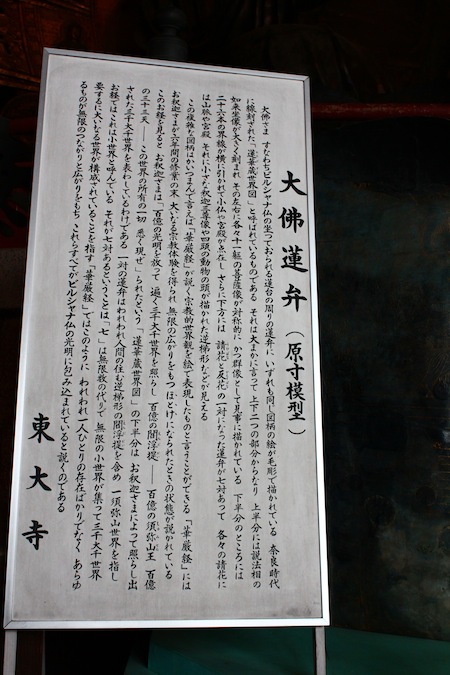 大佛蓮弁（原寸模型）
大佛さま すなわちビルシャナ仏の坐っておられる蓮台の周りの蓮弁に いずれも同じ図柄の絵が毛彫で描かれている 奈良時代
に線刻された「蓮華蔵世界図」と呼ばれているものである それは大まかに言って 上下二つの部分からなり 上半分には説法相の
如来坐像が大きく刻まれ その左右に各々十一躯の菩薩像が対称的に かつ群像として見事に描かれている 下半分のところには
二十六本の界線が横に引かれて小仏や宮殿が点在し さらに下方には 請花と反花の一対になった蓮弁が七対あって 各々の請花に
は山脈や宮殿 それに小さな釈迦三尊像や四頭の動物の頭が描かれた逆梯形などが見える
この複雑な図柄はかいつまんで言えば「華厳経」が説く宗教的世界観を絵で表現したものと言うことができる 「華厳経」には
お釈迦さまが六年間の修業の末 大いなる宗教体験を得られ 無限の広がりをもつほとけになられたときの状態が説かれている
このお経を見ると お釈迦さまは「百億の光明を放って 遍く三千大千世界を照らし 百億の閻浮提 ―― 百億の須弥山王 百億
の三十三天 ―― この世界の所有の一切 悉く現ぜ」られたという 「蓮華蔵世界図」の下半分は お釈迦さまによって照らし出
された三千大千世界を表わしているわけである 一対の蓮弁はわれわれ人間の住む逆梯形の閻浮提を含め 一須弥山世界を指し
お経ではこれは小世界と呼んでいる それが七対あるということは「七」は無限数の代りで 無限の小世界が集って三千大千世界
要するに大いなる世界が構成されていることを指す 「華厳経」ではこのように われわれ一人ひとりの存在ばかりでなく あらゆ
るものが無限のつながりと広がりをもち これらすべてがビルシャナ仏の光明に包み込まれていると説くのである
東大寺